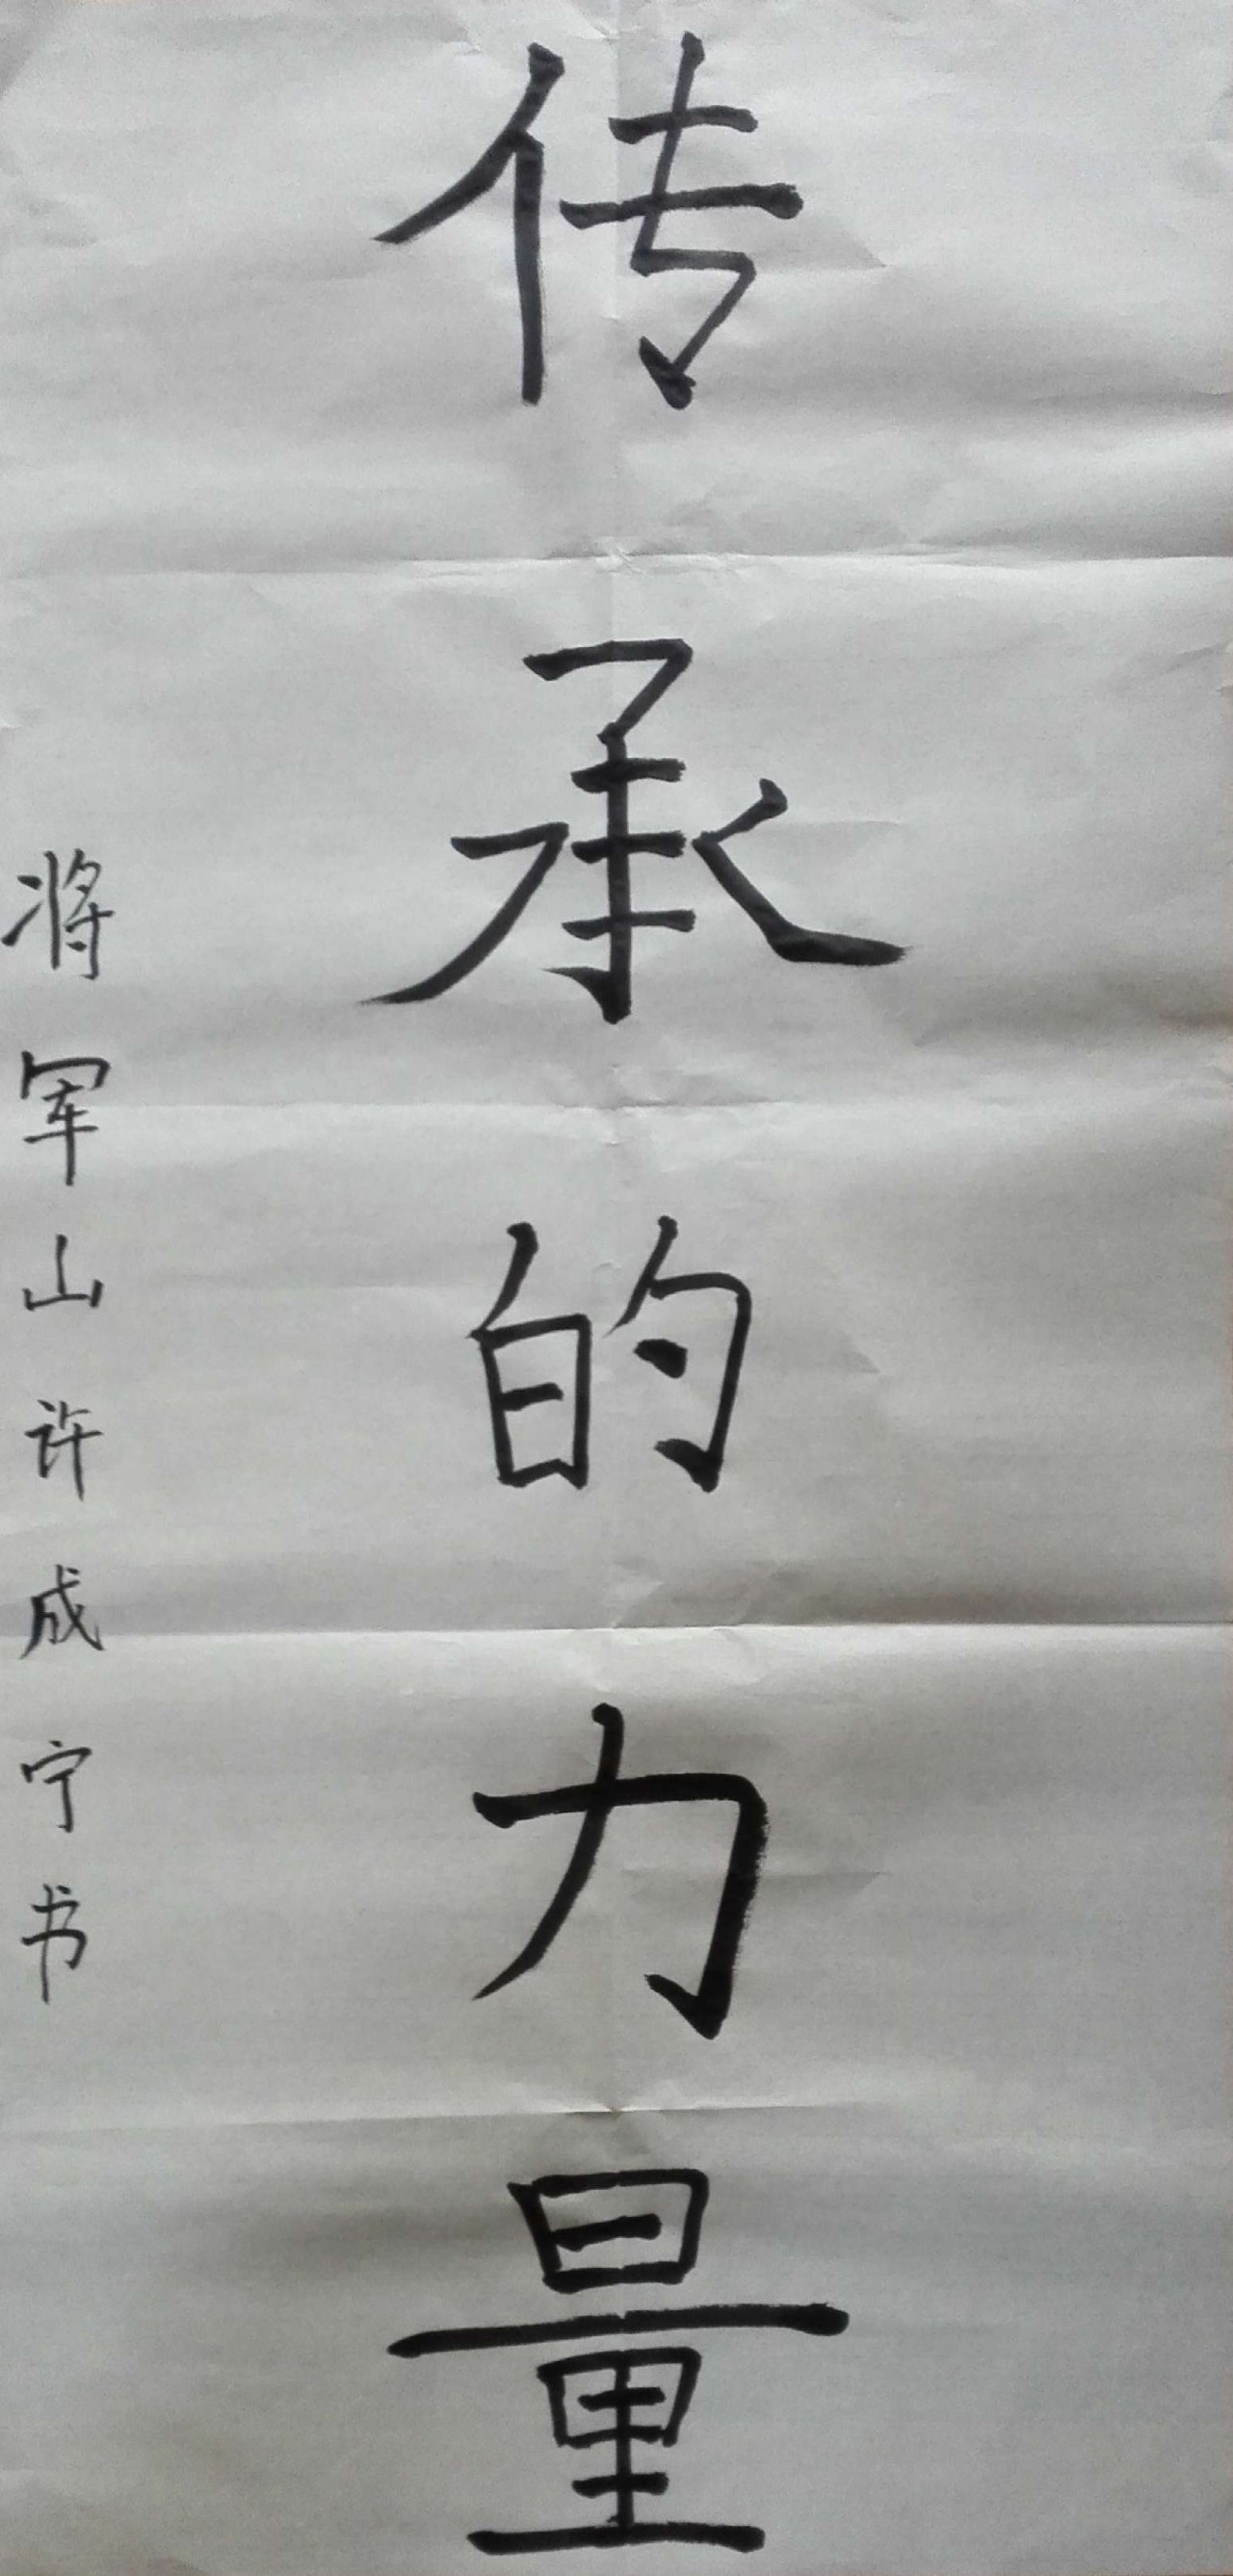 传承的力量
将军山许成宁书